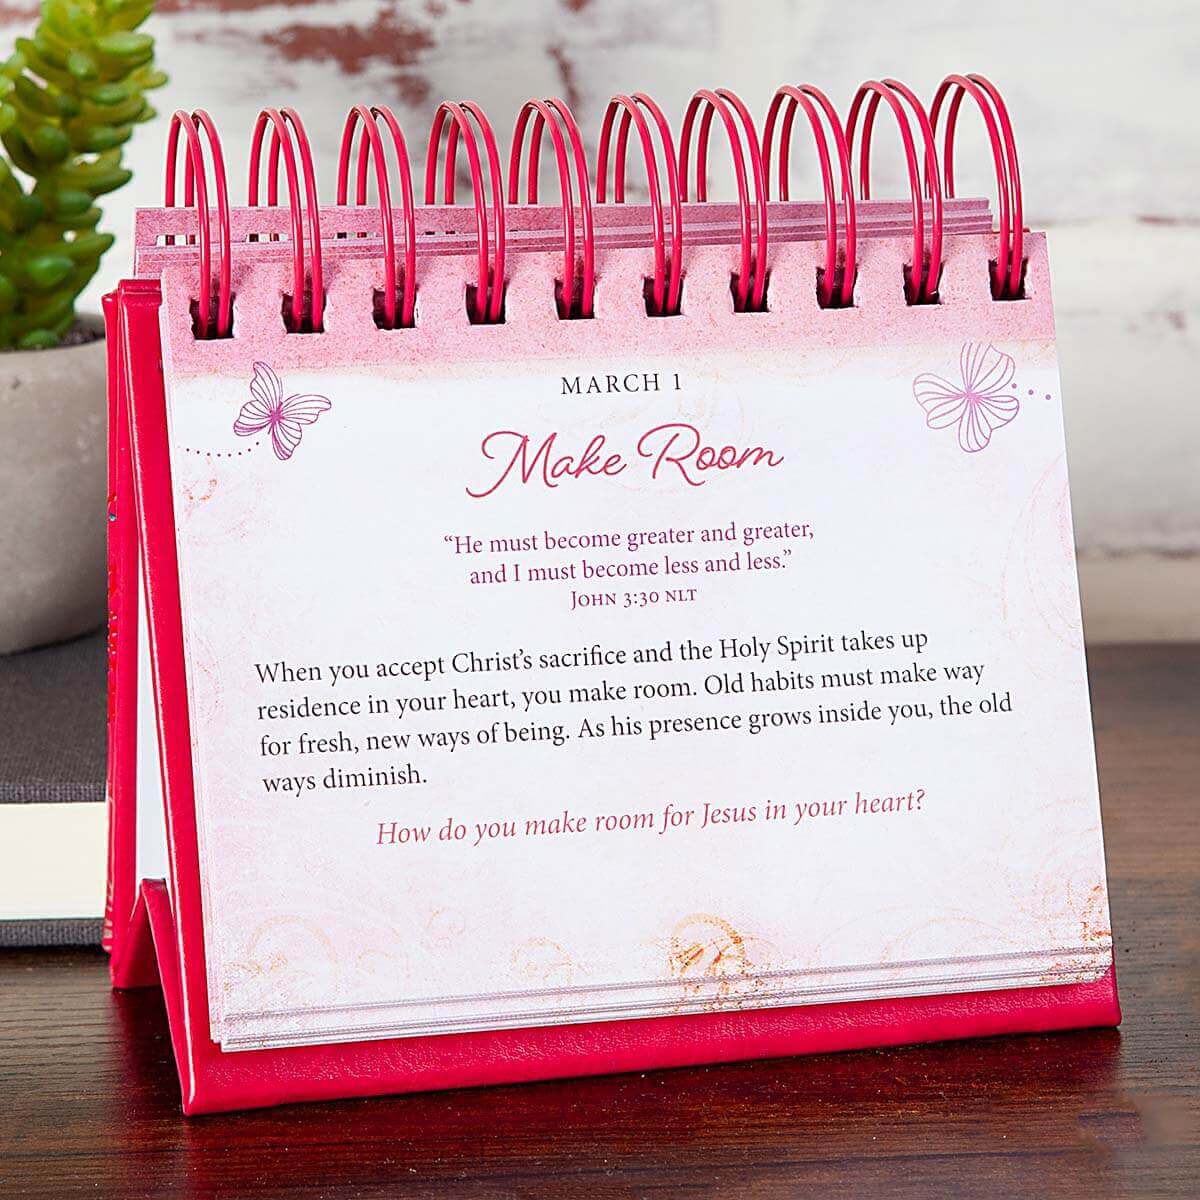 MARCH 1
Make Room
“He must become greater and greater,
and I must become less and less.”
JOHN 3:30 NLT
When you accept Christ’s sacrifice and the Holy Spirit takes up
residence in your heart, you make room. Old habits must make way
for fresh, new ways of being. As his presence grows inside you, the old
ways diminish.
How do you make room for Jesus in your heart?